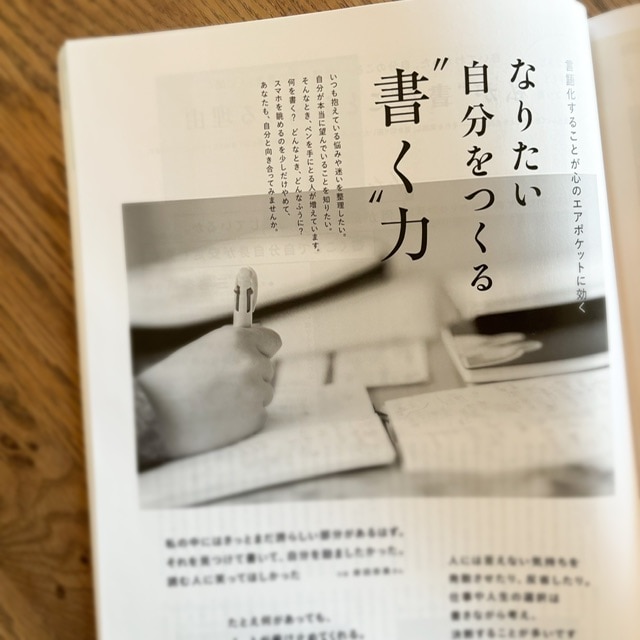 言語化することが心のエアポケットに効く
なりたい
自分をつくる
〝書く〟力
いつも抱えている悩みや迷いを整理したい。
自分が本当に望んでいることを知りたい。
そんなとき、ペンを手にとる人が増えています。
何を書く？ どんなとき、どんなふうに？
スマホを眺めるのを少しだけやめて、
あなたも、自分と向き合ってみませんか。
私の中にはきっとまだ誇らしい部分があるはず。
それを見つけて書いて、自分を励ましたかった。
読む人に笑ってほしかった
人には言えない気持ちを
発散させたり、反省したり。
仕事や人生の選択は
書きながら考え、
決断することが多いです
たとえ何があっても、